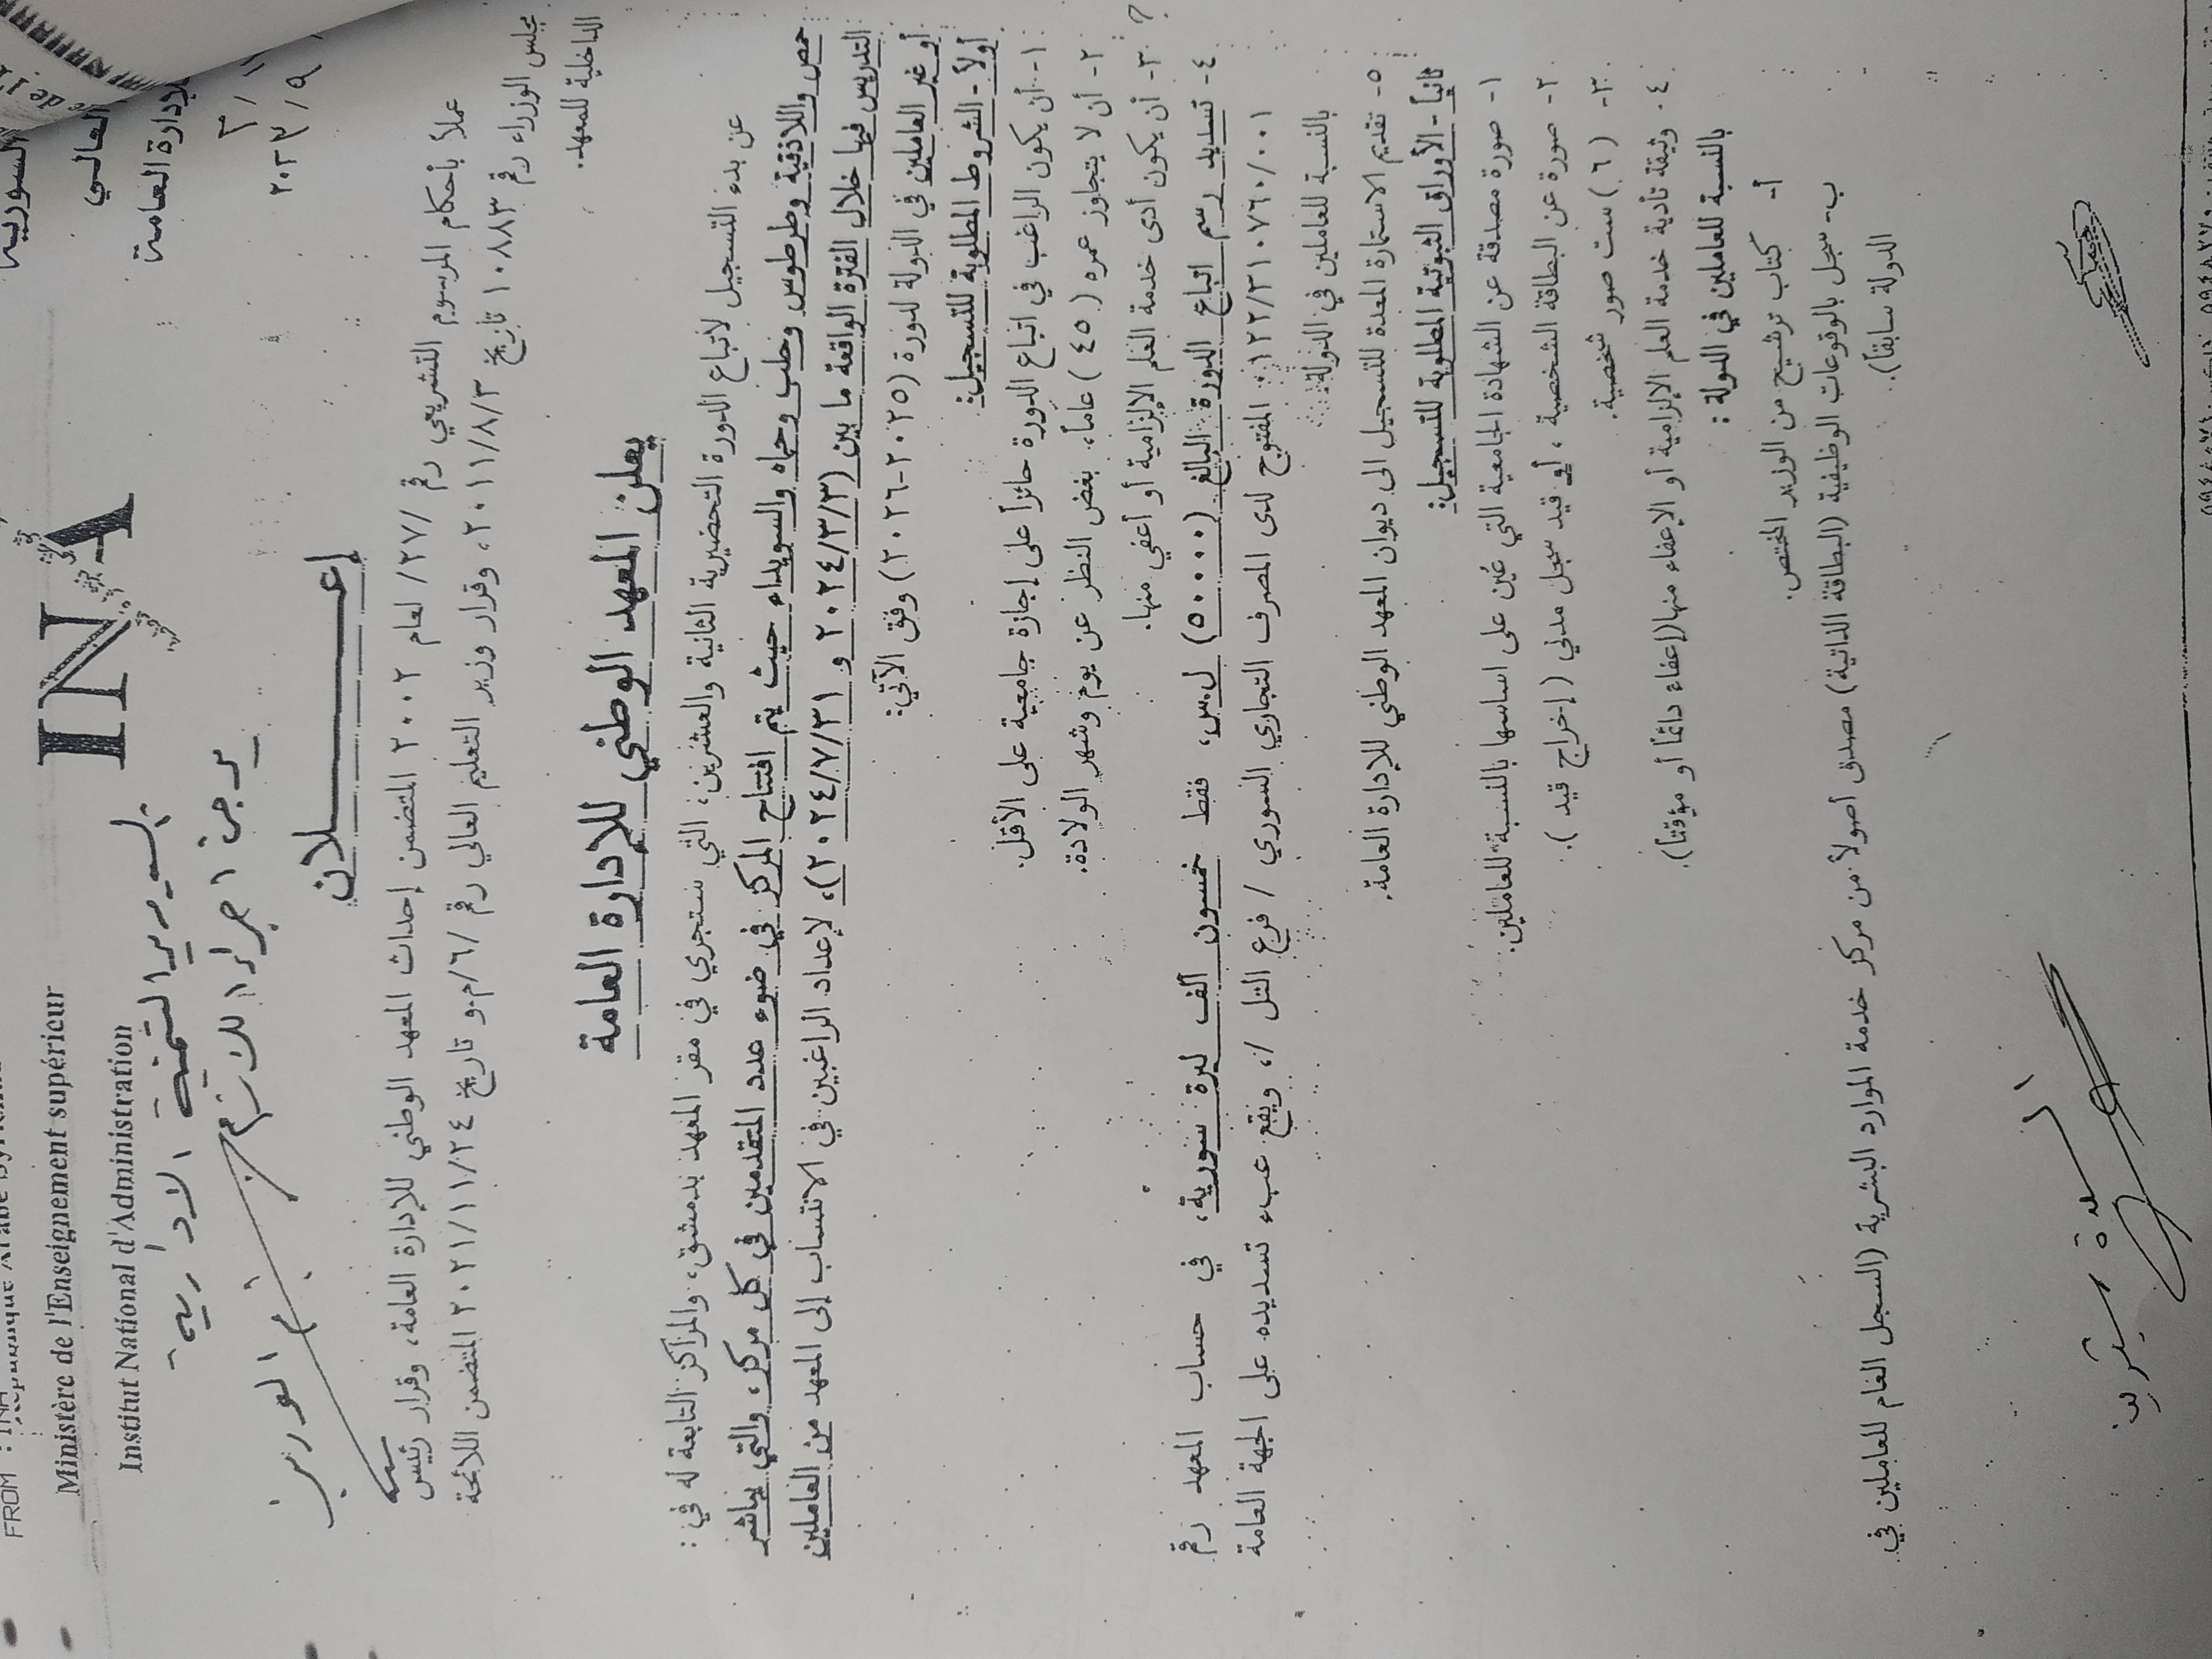 FROM : INA
République Arabe Syrienne
Ministère de l'Enseignement supérieur
Institut National d'Administration
INA
السورية
العالي
للإدارة العامة
السيد مدير التنمية الادارية
يرجى اجراء اللازم
إعـــــــلان
عملاً بأحكام المرسوم التشريعي رقم /٢٧/ لعام ٢٠٠٢ المتضمن إحداث المعهد الوطني للإدارة العامة، وقرار رئيس
مجلس الوزراء رقم ١٠٨٨٣ تاريخ ٢٠١١/٨/٣، وقرار وزير التعليم العالي رقم /٦/م.و تاريخ ٢٠٢١/١١/٢٤ المتضمن اللائحة
الداخلية للمعهد.
يعلن المعهد الوطني للإدارة العامة
عن بدء التسجيل لاتباع الدورة التحضيرية الثانية والعشرين، التي ستجري في مقر المعهد بدمشق، والمراكز التابعة له في :
حمص واللاذقية وطرطوس وحلب وحماه والسويداء حيث يتم افتتاح المركز في ضوء عدد المتقدمين في كل مركز، والتي يباشر
التدريس فيها خلال الفترة الواقعة ما بين (٢٠٢٤/٣/٣ و ٢٠٢٤/٧/٣١)، لإعداد الراغبين في الانتساب إلى المعهد من العاملين
أو غير العاملين في الدولة لدورة (٢٠٢٥-٢٠٢٦) وفق الآتي:
أولاً - الشروط المطلوبة للتسجيل:
١- أن يكون الراغب في اتباع الدورة حائزاً على إجازة جامعية على الأقل.
٢- أن لا يتجاوز عمره (٤٥) عاماً، بغض النظر عن يوم وشهر الولادة.
٣- أن يكون أدى خدمة العلم الإلزامية أو أعفي منها.
٤- تسديد رسم اتباع الدورة البالغ (٥٠٠٠٠) ل.س، فقط خمسون ألف ليرة سورية، في حساب المعهد رقم
١٢٢/٣١٠٧٦٠/٠٠١ المفتوح لدى المصرف التجاري السوري / فرع التل /، ويقع عبء تسديده على الجهة العامة
بالنسبة للعاملين في الدولة.
٥- تقديم الاستمارة المعدة للتسجيل الى ديوان المعهد الوطني للإدارة العامة.
ثانياً - الأوراق الثبوتية المطلوبة للتسجيل:
١- صورة مصدقة عن الشهادة الجامعية التي عُين على اساسها بالنسبة للعاملين.
٢- صورة عن البطاقة الشخصية ، أو قيد سجل مدني (إخراج قيد ).
٣- (٦) ست صور شخصية.
٤. وثيقة تأدية خدمة العلم الإلزامية أو الإعفاء منها(إعفاء دائماً أو مؤقتاً).
بالنسبة للعاملين في الدولة :
أ- كتاب ترشيح من الوزير المختص.
ب- سجل بالوقوعات الوظيفية (البطاقة الذاتية) مصدق أصولاً من مركز خدمة الموارد البشرية (السجل العام للعاملين في
الدولة سابقاً).